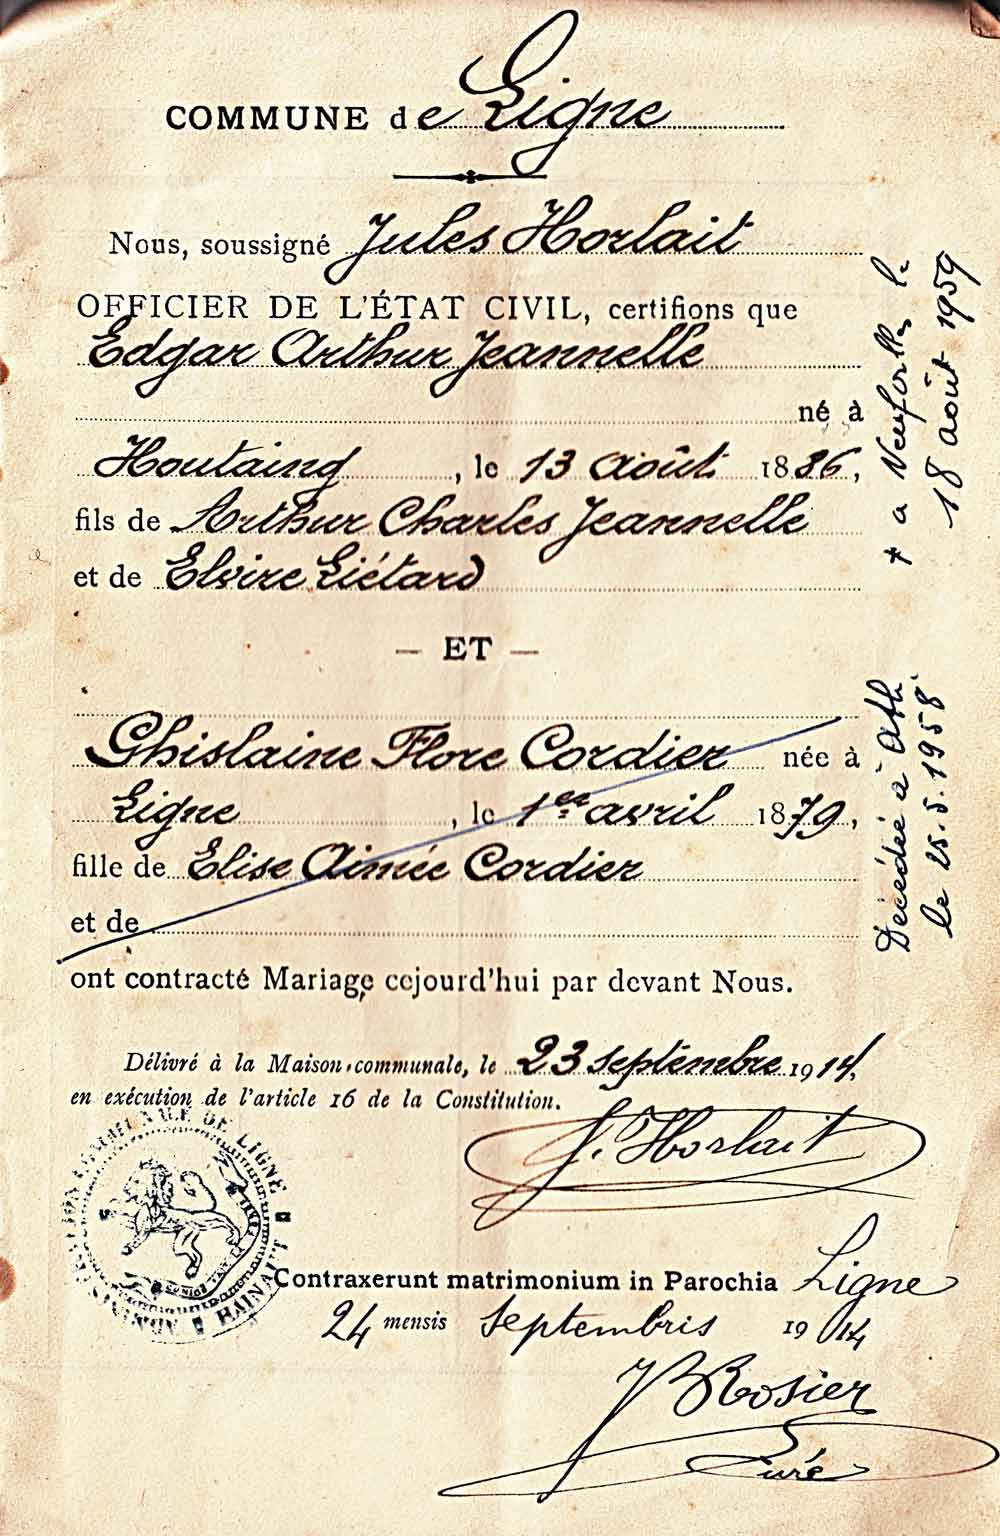 COMMUNE de Ligne
Nous, soussigné Jules Horlait
OFFICIER DE L'ÉTAT CIVIL, certifions que
Edgar Arthur Jeannelle
né à
Houtaing, le 13 août 1886,
fils de Arthur Charles Jeannelle
et de Elvire Liétard
— ET —
Ghislaine Flore Cordier née à
Ligne, le 1er avril 1879,
fille de Elise Aimée Cordier
et de
ont contracté Mariage cejourd'hui par devant Nous.
Délivré à la Maison communale, le 23 septembre 1914,
en exécution de l'article 16 de la Constitution.
J. Horlait
DE LIGNE
HAINAUT
Contraxerunt matrimonium in Parochia Ligne
24 mensis septembris 1914
Rosier
Curé
+ a le
18 août 1959
Décédée à Ath
le 25.5.1958